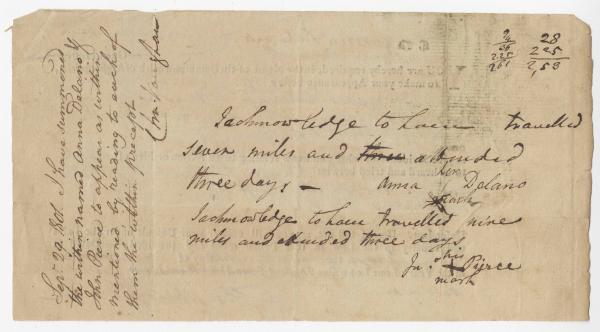 Sepr 29 1801 I have summoned
the within named Anna Delano &
John Pierce to appear as within
mentioned by reading to each of
them the within precept
28
225
2,53
I acknowledge to have travelled
seven miles and three attended
three days — Anna her Delano
mark
I acknowledge to have travelled nine
miles and attended three days
Jn. his + Pierce
mark